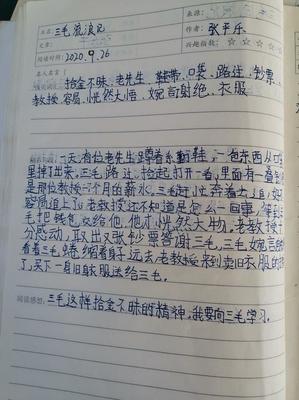 书名：三毛流浪记
来源：
文章：
作者：张平乐
阅读时间：2020.9.26
兴趣指数：☆☆☆☆☆
名人名言：
拾金不昧、老先生、鞋带、口袋、路过、钞票、
教授、容易、恍然大悟、婉言谢绝、衣服
一天，有位老先生蹲着系鞋，一包东西从口
里掉了出来，三毛路过，捡起打开一看，里面有一叠
是那位教授一个月的薪水，三毛连忙奔着去追，好
容易追上了，老教授还不知道是怎么一回事，等到三
毛把钱包交给他，他才恍然大物，老教授十
分感动，取出一张钞票答谢三毛，三毛婉言
看着三毛蜷缩着身远去，老教授来到卖旧衣服的
了，买下一身旧衣服送给三毛。
阅读感想：三毛这样拾金不昧的精神，我要向三毛学习。